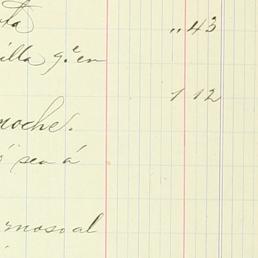 ota " 43
illa q.e en
1 12
noche.
sea á
rmoso al